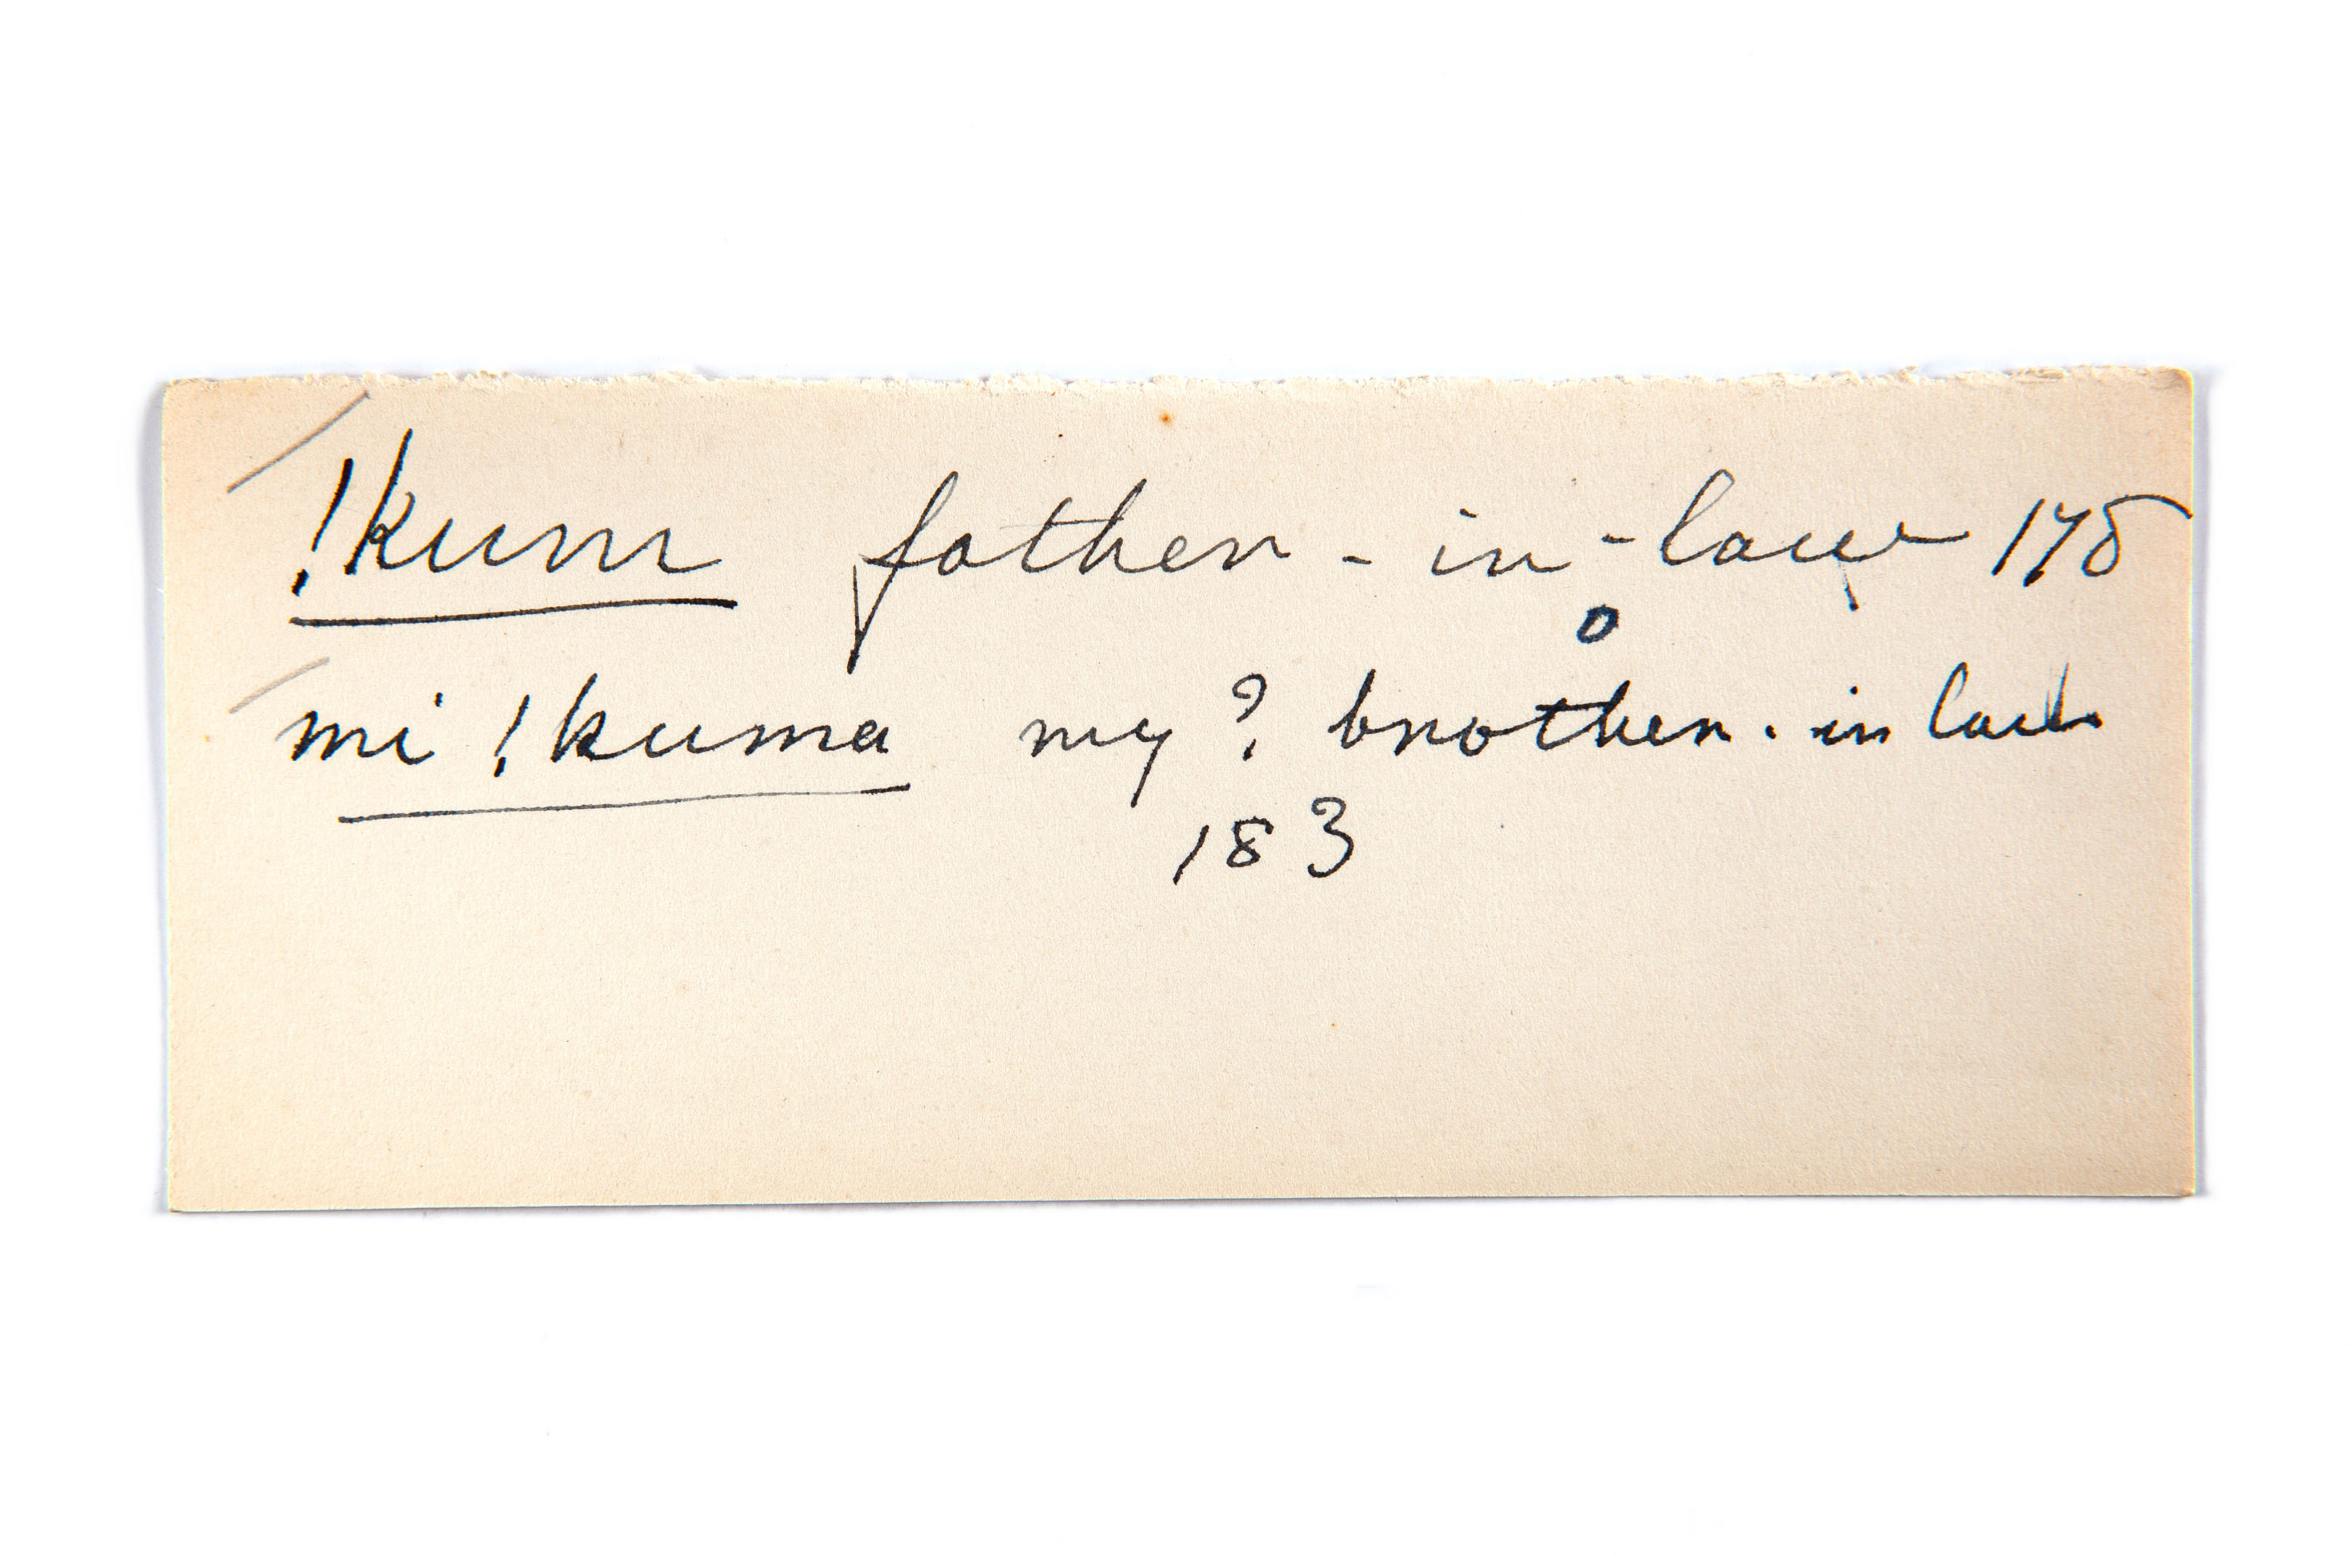 !kum father-in-law 178
mi !kuma my? brother-in law
183